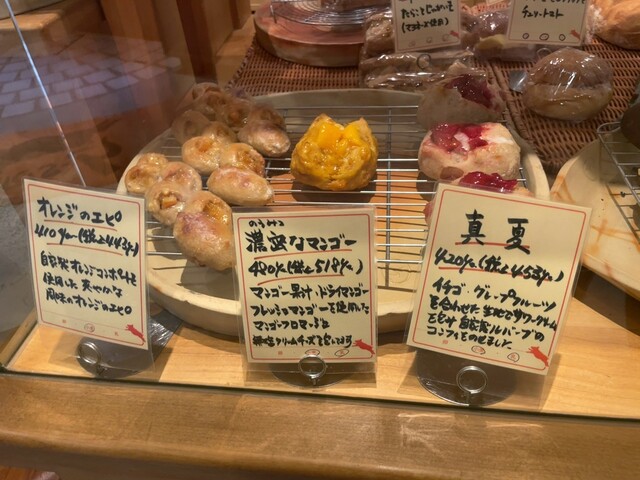 たらことじゃがいも
チェリートマト
オレンジのエピ
410yen(税込443yen)
自家製オレンジコンポートを
使用した 爽やかな
風味のオレンジのエピ
のうみつ
濃密なマンゴー
480yen(税込518yen)
マンゴー果汁・ドライマンゴー
フレッシュマンゴーを使用した
マンゴーフロマージュ
真夏
420yen(税込453yen)
イチゴ、グレープフルーツ
を合わせた生地でサワークリーム
をつつみ 自家製ルバーブの
コンフィをのせました